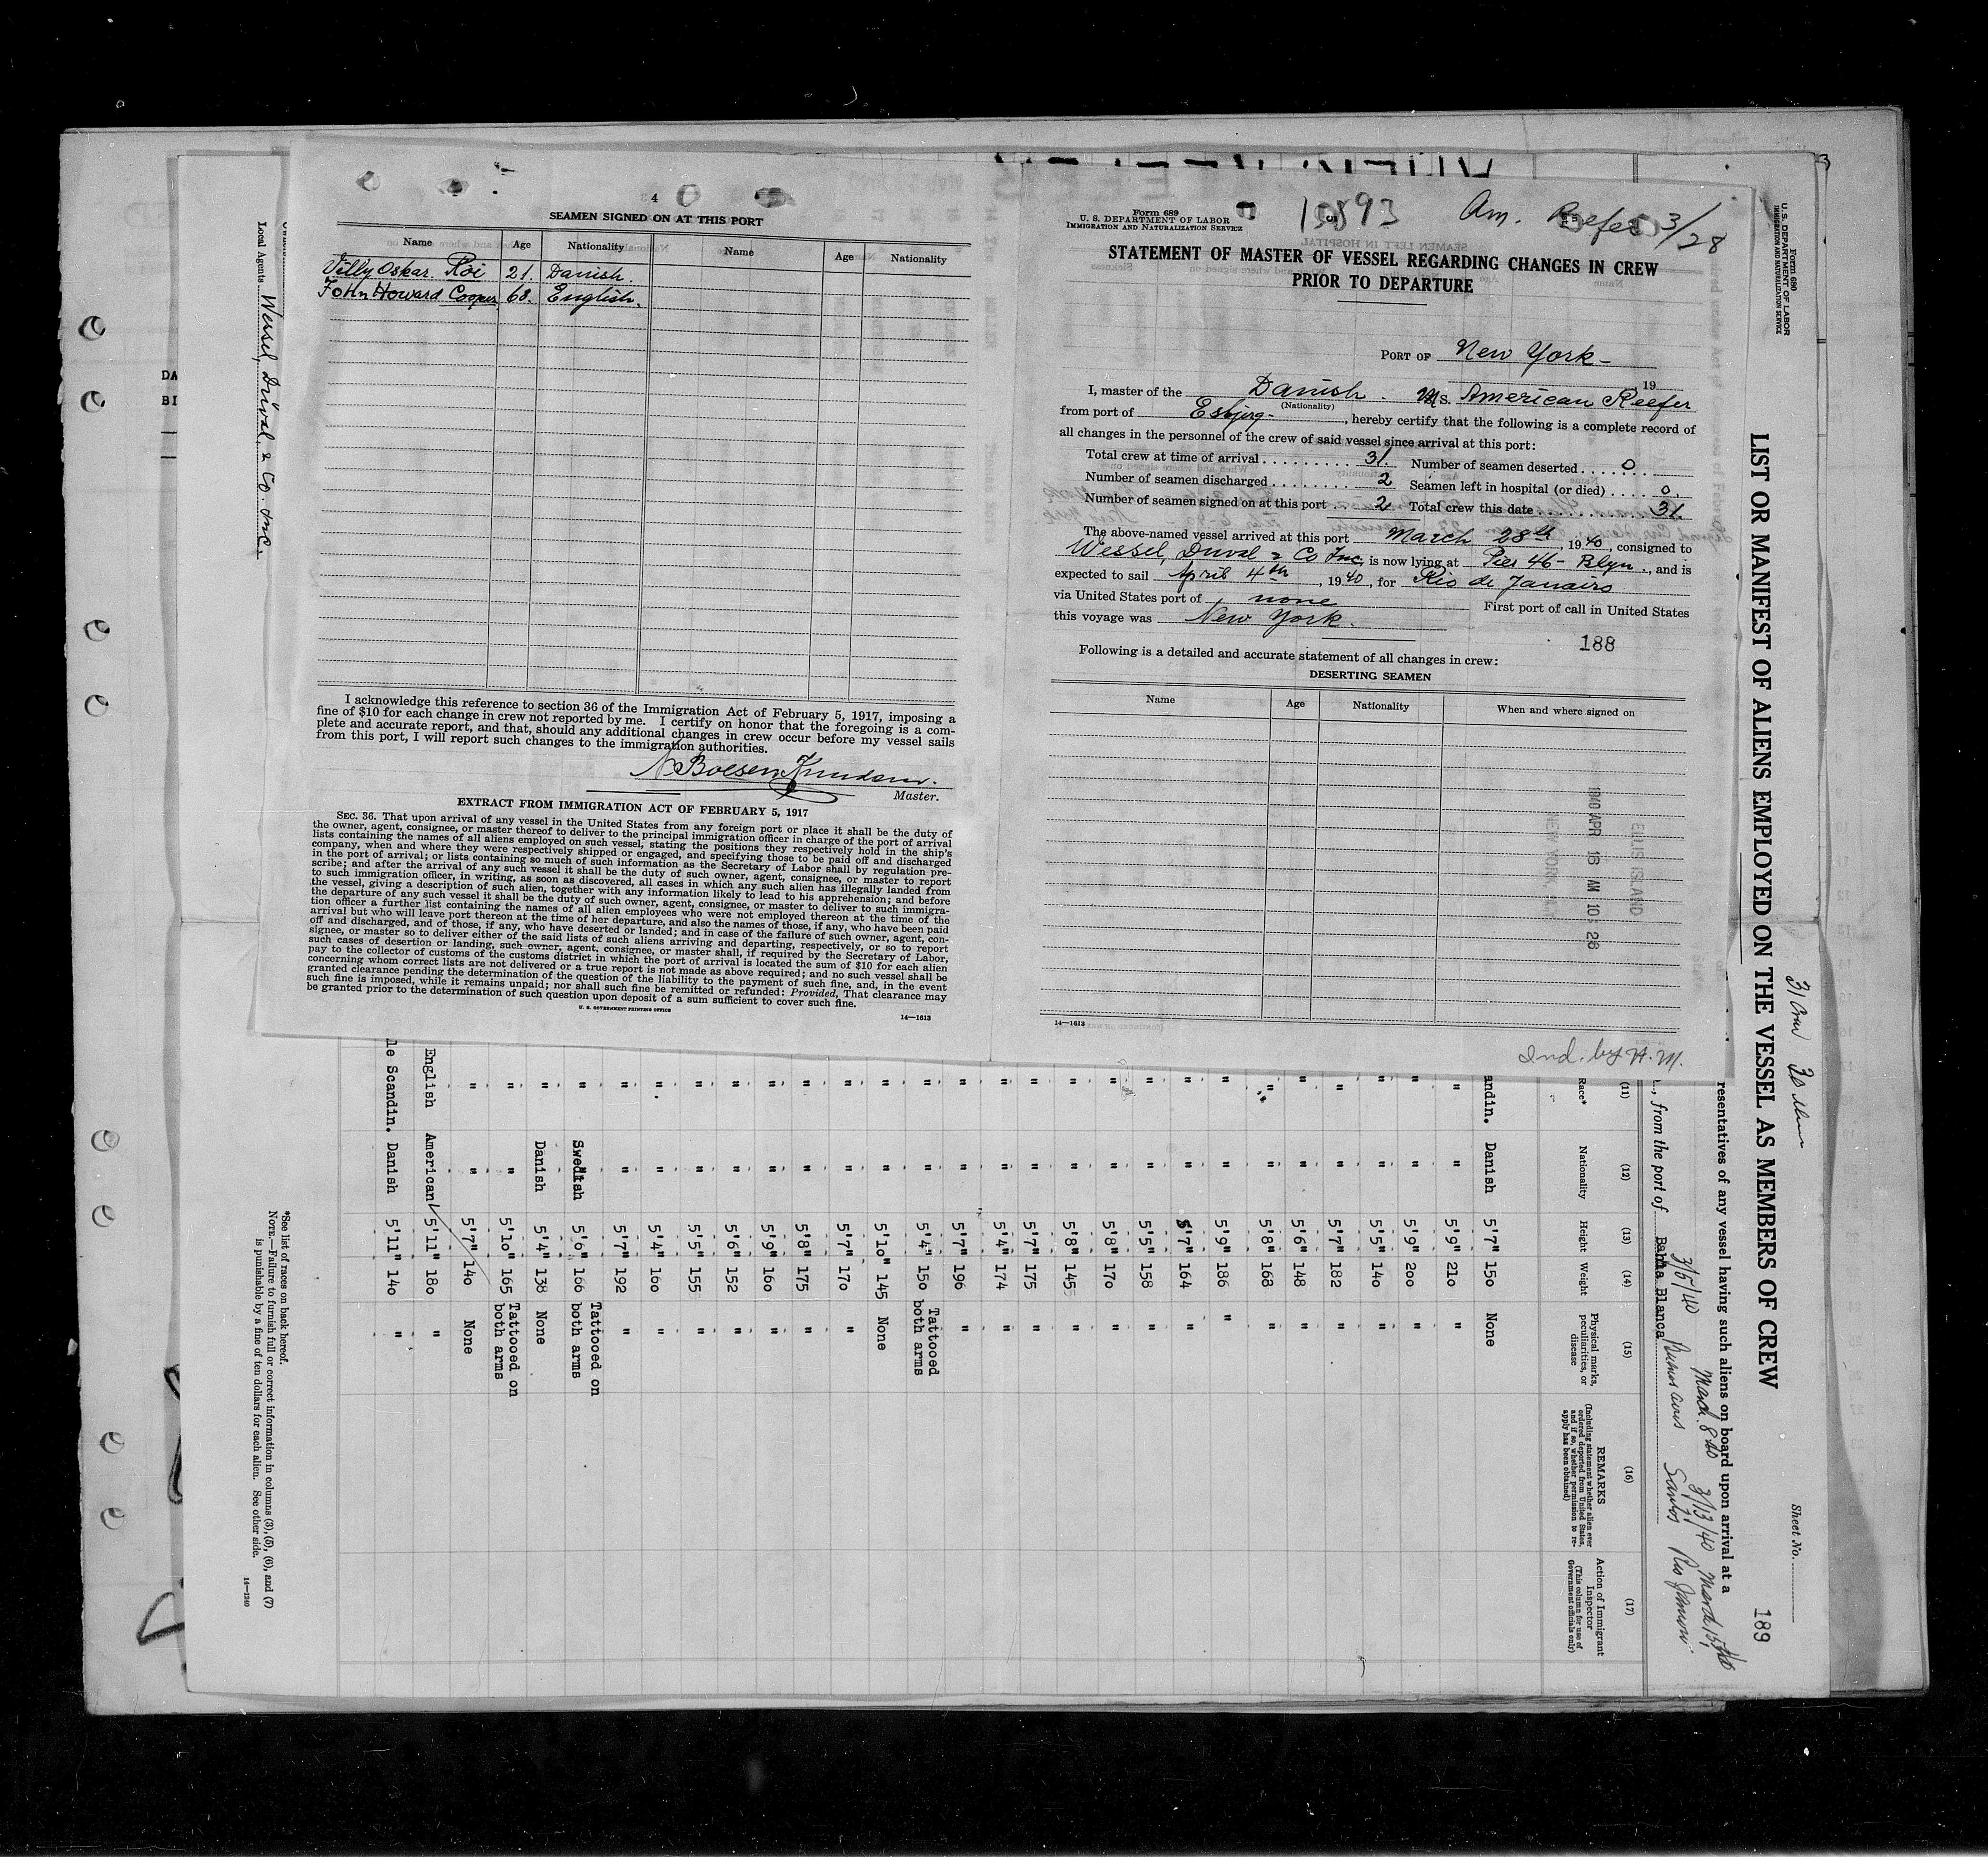 4
SEAMEN SIGNED ON AT THIS PORT
Name Age Nationality Name Age Nationality
Villy Oskar Roi 21. Danish.
John Howard Cooper 68. English.
I acknowledge this reference to section 36 of the Immigration Act of February 5, 1917, imposing a
fine of $10 for each change in crew not reported by me. I certify on honor that the foregoing is a com-
plete and accurate report, and that, should any additional changes in crew occur before my vessel sails
from this port, I will report such changes to the immigration authorities.
N Boesen Knudsen.
Master.
EXTRACT FROM IMMIGRATION ACT OF FEBRUARY 5, 1917
SEC. 36. That upon arrival of any vessel in the United States from any foreign port or place it shall be the duty of
the owner, agent, consignee, or master thereof to deliver to the principal immigration officer in charge of the port of arrival
lists containing the names of all aliens employed on such vessel, stating the positions they respectively hold in the ship's
company, when and where they were respectively shipped or engaged, and specifying those to be paid off and discharged
in the port of arrival; or lists containing so much of such information as the Secretary of Labor shall by regulation pre-
scribe; and after the arrival of any such vessel it shall be the duty of such owner, agent, consignee, or master to report
to such immigration officer, in writing, as soon as discovered, all cases in which any such alien has illegally landed from
the vessel, giving a description of such alien, together with any information likely to lead to his apprehension; and before
the departure of any such vessel it shall be the duty of such owner, agent, consignee, or master to deliver to such immigra-
tion officer a further list containing the names of all alien employees who were not employed thereon at the time of the
arrival but who will leave port thereon at the time of her departure, and also the names of those, if any, who have been paid
off and discharged, and of those, if any, who have deserted or landed; and in case of the failure of such owner, agent, con-
signee, or master so to deliver either of the said lists of such aliens arriving and departing, respectively, or so to report
such cases of desertion or landing, such owner, agent, consignee, or master shall, if required by the Secretary of Labor,
pay to the collector of customs of the customs district in which the port of arrival is located the sum of $10 for each alien
concerning whom correct lists are not delivered or a true report is not made as above required; and no such vessel shall be
granted clearance pending the determination of the question of the liability to the payment of such fine, and, in the event
such fine is imposed, while it remains unpaid; nor shall such fine be remitted or refunded: Provided, That clearance may
be granted prior to the determination of such question upon deposit of a sum sufficient to cover such fine.
U. S. GOVERNMENT PRINTING OFFICE
14—1613
Form 689
U. S. DEPARTMENT OF LABOR
IMMIGRATION AND NATURALIZATION SERVICE
Am. Reefer 3/28
STATEMENT OF MASTER OF VESSEL REGARDING CHANGES IN CREW
PRIOR TO DEPARTURE
PORT OF New York
19
I, master of the Danish MS. American Reefer
(Nationality)
from port of Esbjerg, hereby certify that the following is a complete record of
all changes in the personnel of the crew of said vessel since arrival at this port:
Total crew at time of arrival 31. Number of seamen deserted 0
Number of seamen discharged 2 Seamen left in hospital (or died) 0.
Number of seamen signed on at this port 2 Total crew this date 31
The above-named vessel arrived at this port March 28th, 1940, consigned to
Wessel, Duval & Co Inc, is now lying at Pier 46 - Blyn., and is
expected to sail April 4th, 1940, for Rio de Janairo
via United States port of none First port of call in United States
this voyage was New York.
188
Following is a detailed and accurate statement of all changes in crew:
DESERTING SEAMEN
Name Age Nationality When and where signed on
ELLIS ISLAND
1940 APR 18 AM 10 26
NEW YORK
14—1613
Ind. by H. M.
Form 680
U. S. DEPARTMENT OF LABOR
IMMIGRATION AND NATURALIZATION SERVICE
LIST OR MANIFEST OF ALIENS EMPLOYED ON THE VESSEL AS MEMBERS OF CREW
Sheet No.
189
resentatives of any vessel having such aliens on board upon arrival at a
, from the port of Bahia Blanca
3/5/40 March 8 3/13/40 March 15
Santos
(11) (12) (13) (14) (15) (16) (17)
Race* Nationality Height Weight Physical marks, peculiarities, or disease
REMARKS
(Including statement whether alien ever ordered deported from United States, and if so, whether permission to re-apply has been obtained)
Action of Immigrant Inspector
(This column for use of Government officials only)
andin. Danish 5'7" 150 None
" " 5'9" 210 "
" " 5'9" 200 "
" " 5'5" 140 "
" " 5'7" 182 "
" " 5'6" 148 "
" " 5'8" 168 "
" " 5'9" 186 "
" " 5'7" 164 "
" " 5'5" 158 "
" " 5'8" 170 "
" " 5'8" 145 "
" " 5'7" 175 "
" " 5'4" 174 "
" " 5'7" 196 "
" " 5'4" 150 Tattooed both arms
" " 5'10" 145 None
" " 5'7" 170 "
" " 5'8" 175 "
" " 5'9" 160 "
" " 5'6" 152 "
" " 5'5" 155 "
" " 5'4" 160 "
" " 5'7" 192 "
" Swedish 5'6" 166 Tattooed on both arms
" Danish 5'4" 138 None
" " 5'10" 165 Tattooed on both arms
" " 5'7" 140 None
English American 5'11" 180 "
le Scandin. Danish 5'11" 140 "
*See list of races on back hereof.
NOTE.—Failure to furnish full or correct information in columns (3), (5), (6), and (7)
is punishable by a fine of ten dollars for each alien. See other side.
14—1240
Local Agents Wessel, Duval & Co. Inc.
DA
BI